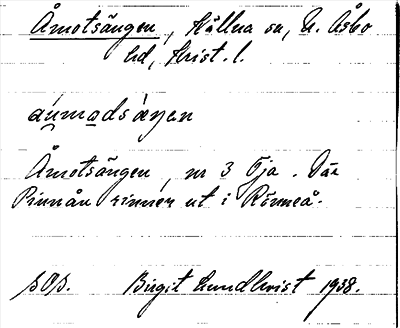 Åmotsängen, Hallna sn, N. Åsbo
hd, Krist. l.
áúmadsæŋen
Åmotsängen, nr 3 Öja. Där
Pinnån rinner ut i Rönneå.
s. 0/s. Birgit Lundkvist 1938.